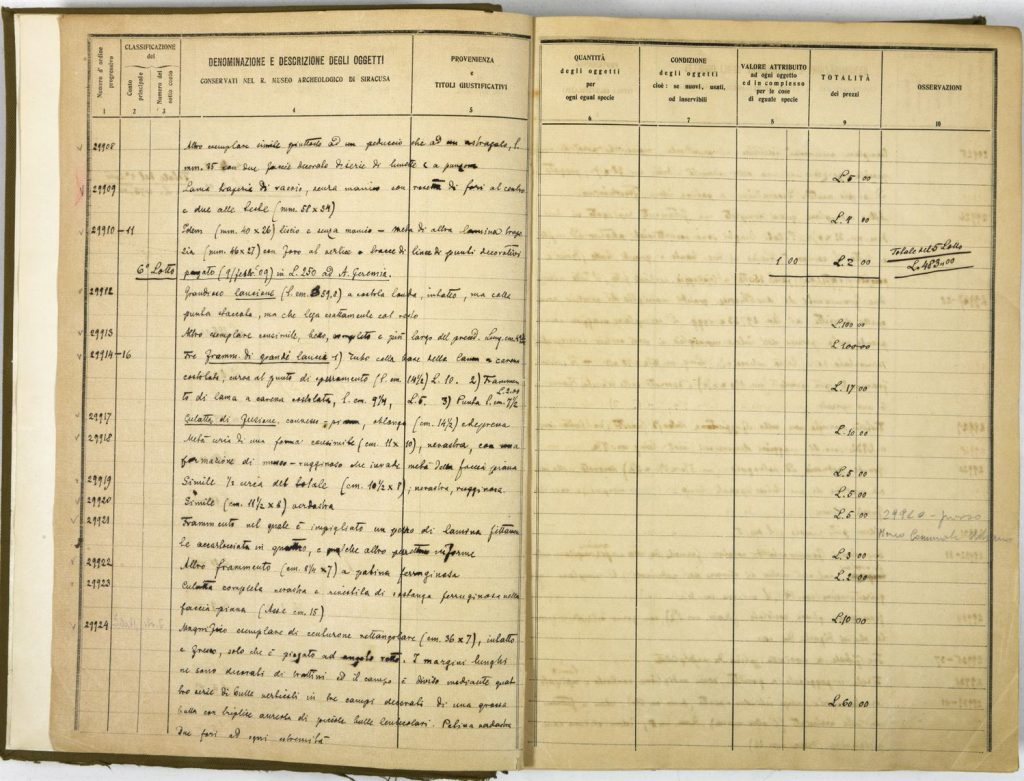 Numero d'ordine progressivo
CLASSIFICAZIONE del
Conto principale
Numero del sotto conto
DENOMINAZIONE E DESCRIZIONE DEGLI OGGETTI
CONSERVATI NEL R. MUSEO ARCHEOLOGICO DI SIRACUSA
PROVENIENZA
e
TITOLI GIUSTIFICATIVI
QUANTITÀ
degli oggetti
per
ogni egual specie
CONDIZIONE
degli oggetti
cioè: se nuovi, usati,
od inservibili
VALORE ATTRIBUITO
ad ogni oggetto
ed in complesso
per le cose
di eguale specie
TOTALITÀ
dei prezzi
OSSERVAZIONI
1 2 3 4 5 6 7 8 9 10
29908 Altro esemplare simile piuttosto ad un peduccio che ad un astragalo, l.
mm. 35 con due faccie decorate di serie di lunette e a
L. 5 00
29909 Lama di rasoio, senza manico con di fori al centro
e due alle teste (mm. 58 x 34)
L. 4 00
29910-11 Idem (mm. 40 x 26) liscio e senza manico - metà di altra lamina
(mm. 46 x 27) con foro al vertice e tracce di linee di punti decorativi
6° Lotto pagato (9/febbr. 09) in L. 250 ad A. Geremia.
1 00 L. 2 00
Totale del 5 Lotto
L. 483.00
29912 Grandioso lancione (l. cm. 39,8) a costola tonda, intatto, ma colla
punta staccata, ma che lega esattamente col resto
L. 100 00
29913 Altro esemplare consimile, bello, completo e più largo del preced. Lung. cm.
L. 100 00
29914-16 Tre framm. di grande lancia 1) Tubo colla base della lama a carena
costolata, curva al punto di spezzamento (l. cm. 14½) L. 10. 2) Frammen
to di lama a carena costolata, l. cm. 9¼, L. 5. 3) Punta l. cm. 7½
L. 2.00
L. 17 00
29917 Culatta di fusione, connesso - piana, oblunga (cm. 14½) e depressa
L. 10 00
29918 Metà circa di una forma consimile (cm. 11 x 10), nerastra, con una
formazione di - rugginoso che invade metà della faccia piana
L. 5 00
29919 Simile ½ circa del totale (cm. 10½ x 8); nerastra, rugginosa.
L. 5 00
29920 Simile (cm. 11½ x 8) verdastra
L. 5 00
29920 - presso
Museo Comunale
29921 Frammento nel quale è impigliato un pezzo di lamina fittamen
te accartocciata in quattro, e qualche altro pezzettino informe
L. 3 00
29922 Altro frammento (cm. 8¼ x 7) a patina ferruginosa
L. 2 00
29923 Culatta completa nerastra e rivestita di sostanza ferruginosa nella
faccia piana (Asse cm. 15)
L. 10 00
29924 Magnifico esemplare di cinturone rettangolare (cm. 36 x 7), intatto
e grezzo, solo che è piegato ad angolo retto. I margini lunghi
ne sono decorati di trattini ed il campo è diviso mediante quat
tro serie di bulle verticali in tre campi decorati di una grossa
bulla con triplice aureola di piccole bulle lenticolari. Patina verdastra
due fori ad ogni estremità
L. 60 00